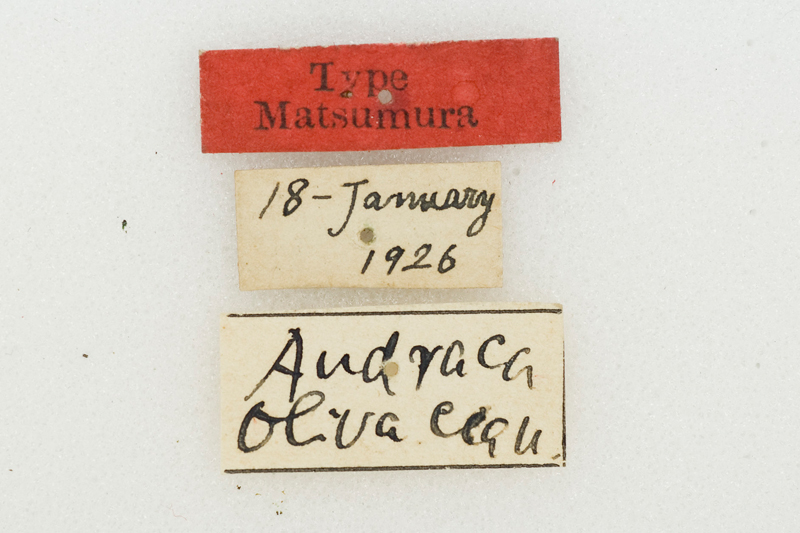 Type
Matsumura
18-January
1926
Andraca
Olivacea n.